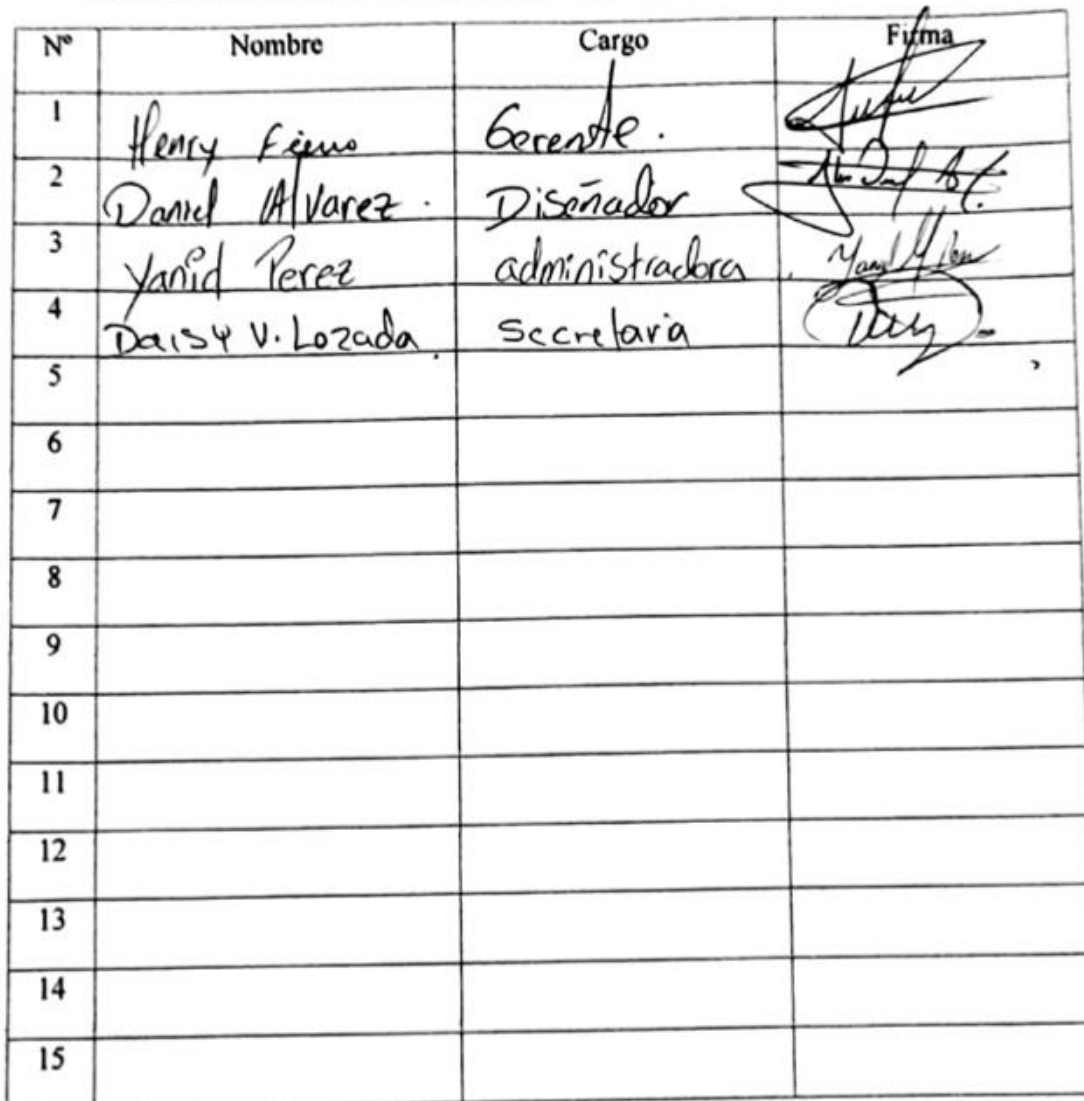 Nº Nombre Cargo Firma
1 Henry Gerente.
2 Daniel Alvarez. Diseñador
3 Yanid Perez administradora
4 Daisy V. Lozada Secretaria
5
6
7
8
9
10
11
12
13
14
15